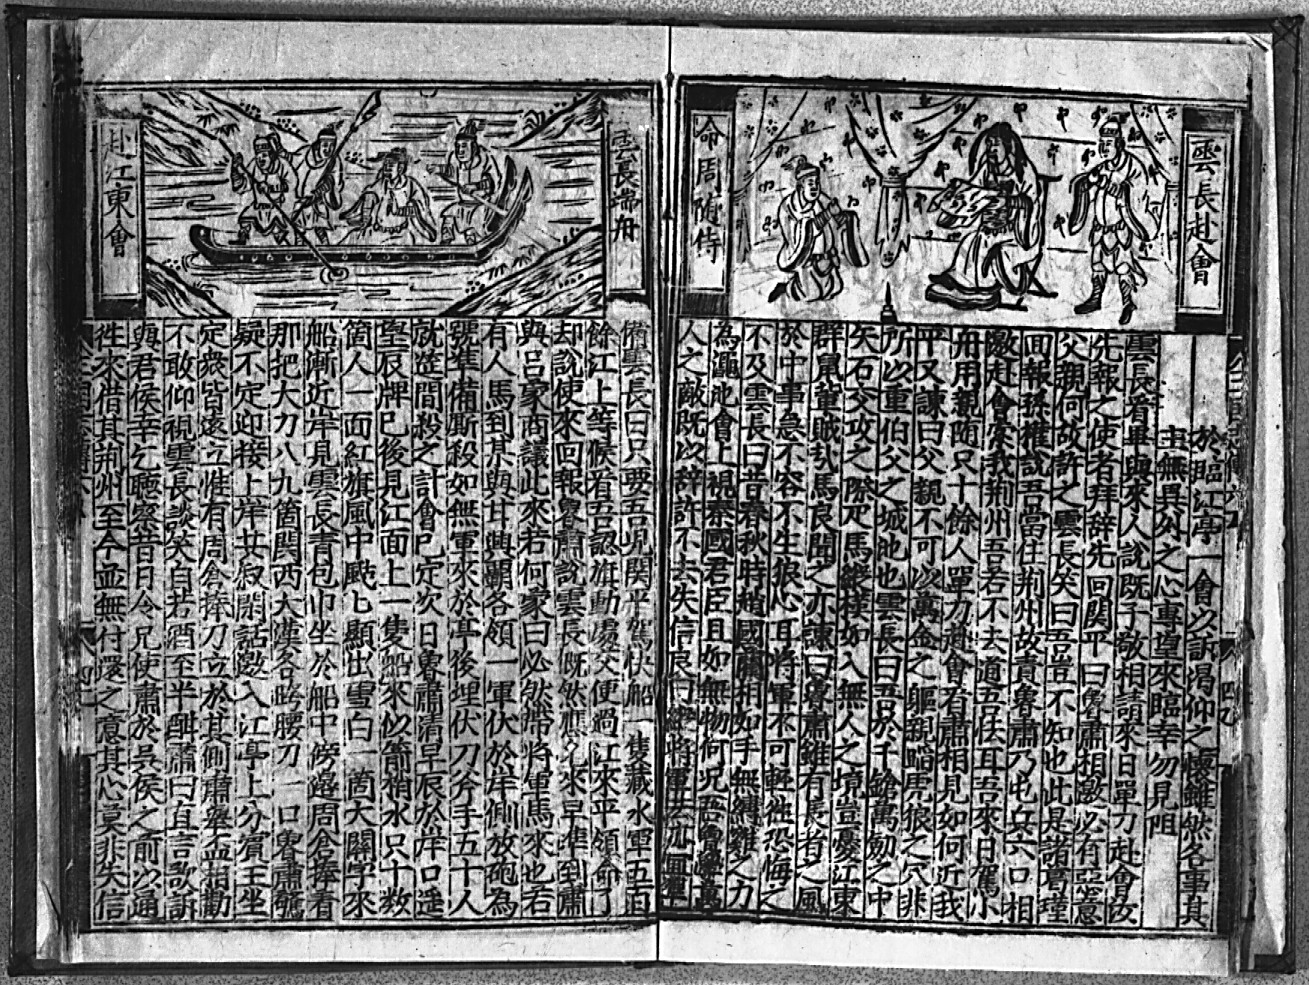 雲長赴會
命周隨侍
於臨江亭一會以訴渴仰之懷雖然各事其
主無異外之心專望來臨幸勿見阻
雲長看畢與來人說既子敬相請來日單刀赴會汝
先報之使者拜辞先回関平曰魯肅相邀必有惡意
父親何故許之雲長笑曰吾豈不知也此是諸葛瑾
回報孫權說吾當住荆州故責魯肅乃屯兵六口相
邀赴會索我荆州吾若不去道吾怯耳吾來日駕小
舟用親随只十餘人單刀赴會看肅相見如何近我
平又諫曰父親不可以萬金之軀親蹈虎狼之穴非
所以重伯父之城池也雲長曰吾於千鎗萬劍之中
矢石父攻之際疋馬縱横如入無人之境豈憂江東
群鼠輩賊哉馬良聞之亦諫曰魯肅雖有長者之風
於中事急不容不生狼心耳將軍不可輕徃恐悔之
不及雲長曰昔春秋時趙國藺相如手無縛雞之力
為澠池會上視秦國君臣且如無物何况吾曾學萬
人之敵既以辞許不去失信良曰縱將軍去亦宜準
雲長端舟
赴江東會
備雲長曰只要吾児関平駕快船一隻藏水軍五百
餘江上等候看吾認旗動處父便過江來平領命了
却說使來回報魯肅說雲長慨然應允來早準到肅
與吕蒙商議此來若何蒙曰必然帶將軍馬來也若
有人馬到某與甘興覇各領一軍伏於岸側放砲為
號準備厮殺如無軍來於亭後埋伏刀斧手五十人
就筵間殺之計會已定次日魯肅清早辰於岸口遥
望辰牌巳後見江面上一隻船來似箭梢水只十数
箇人一面紅旗風中颭七顯出雪白一箇大關字來
船漸近岸見雲長青包巾坐於船中傍邉周倉捧着
那把大刀八九箇関西大漢各跨腰刀一口魯肅驚
疑不定迎接上岸廿叙閑話邀入江亭上分賓主坐
定衆皆遠立惟有周倉捧刀立於其側肅舉盃相勸
不敢仰視雲長談笑自若酒至半酣肅曰直言欲訴
與君侯幸乞聽察昔日令兄使肅於吳侯之前以通
徃來借其荆州至今並無付還之意其心莫非失信